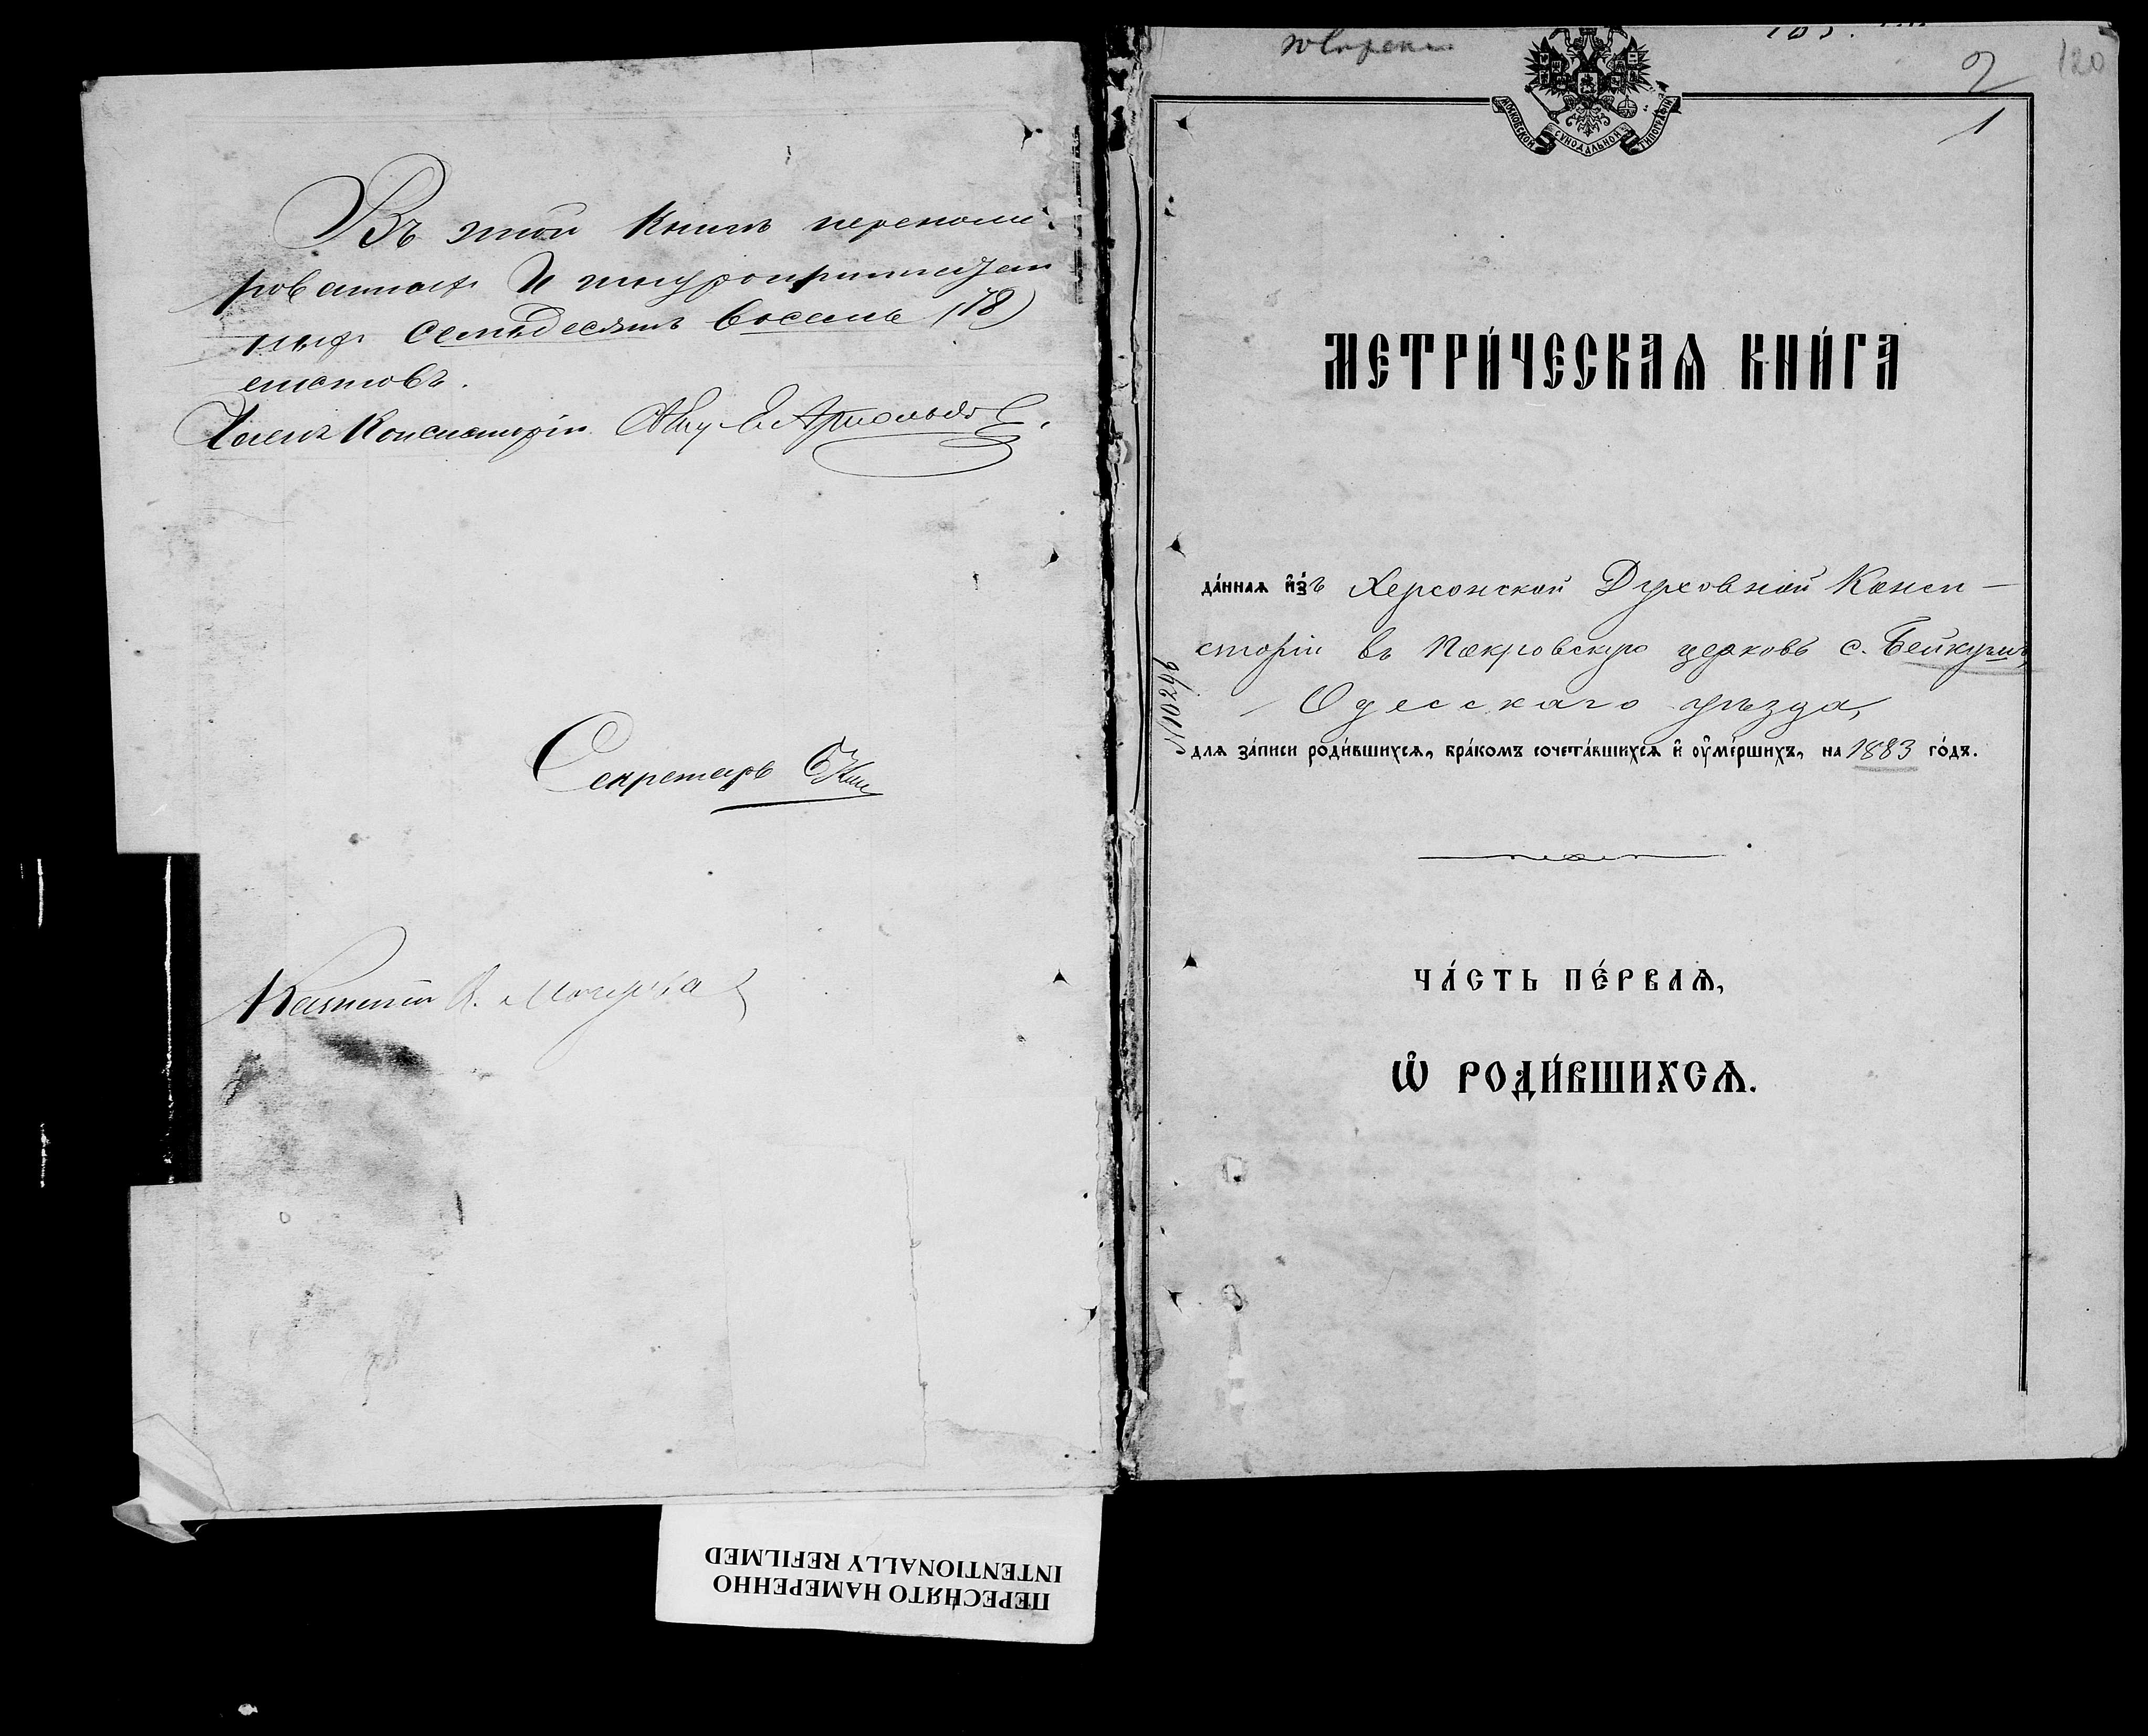 Въ этой Книгѣ перенуме
рованныхъ и шнуроприпечатан
ныхъ семьдесятъ восемь (78)
листовъ.
Членъ Консисторіи
Секретарь
120
2
1
МОСКОВСКОЙ СѴНОДАЛЬНОЙ ТИПОГРАФІИ
МЕТРИ́ЧЕСКАѦ КНИ́ГА
да́ннаѧ и҆зъ Херсонской Духовной Конси-
сторіи въ Покровскую церковь с. Бейкушъ
Одесскаго уѣзда,
для за́писи роди́вшихсѧ, бра́комъ сочета́вшихсѧ и҆ ᲂу҆ме́ршихъ, на 1883 го́дъ.
ЧА́СТЬ ПЕ́РВАѦ,
Ѡ҆ РОДИ́ВШИХСѦ.
ПЕРЕСНЯТО НАМЕРЕННО
INTENTIONALLY REFILMED